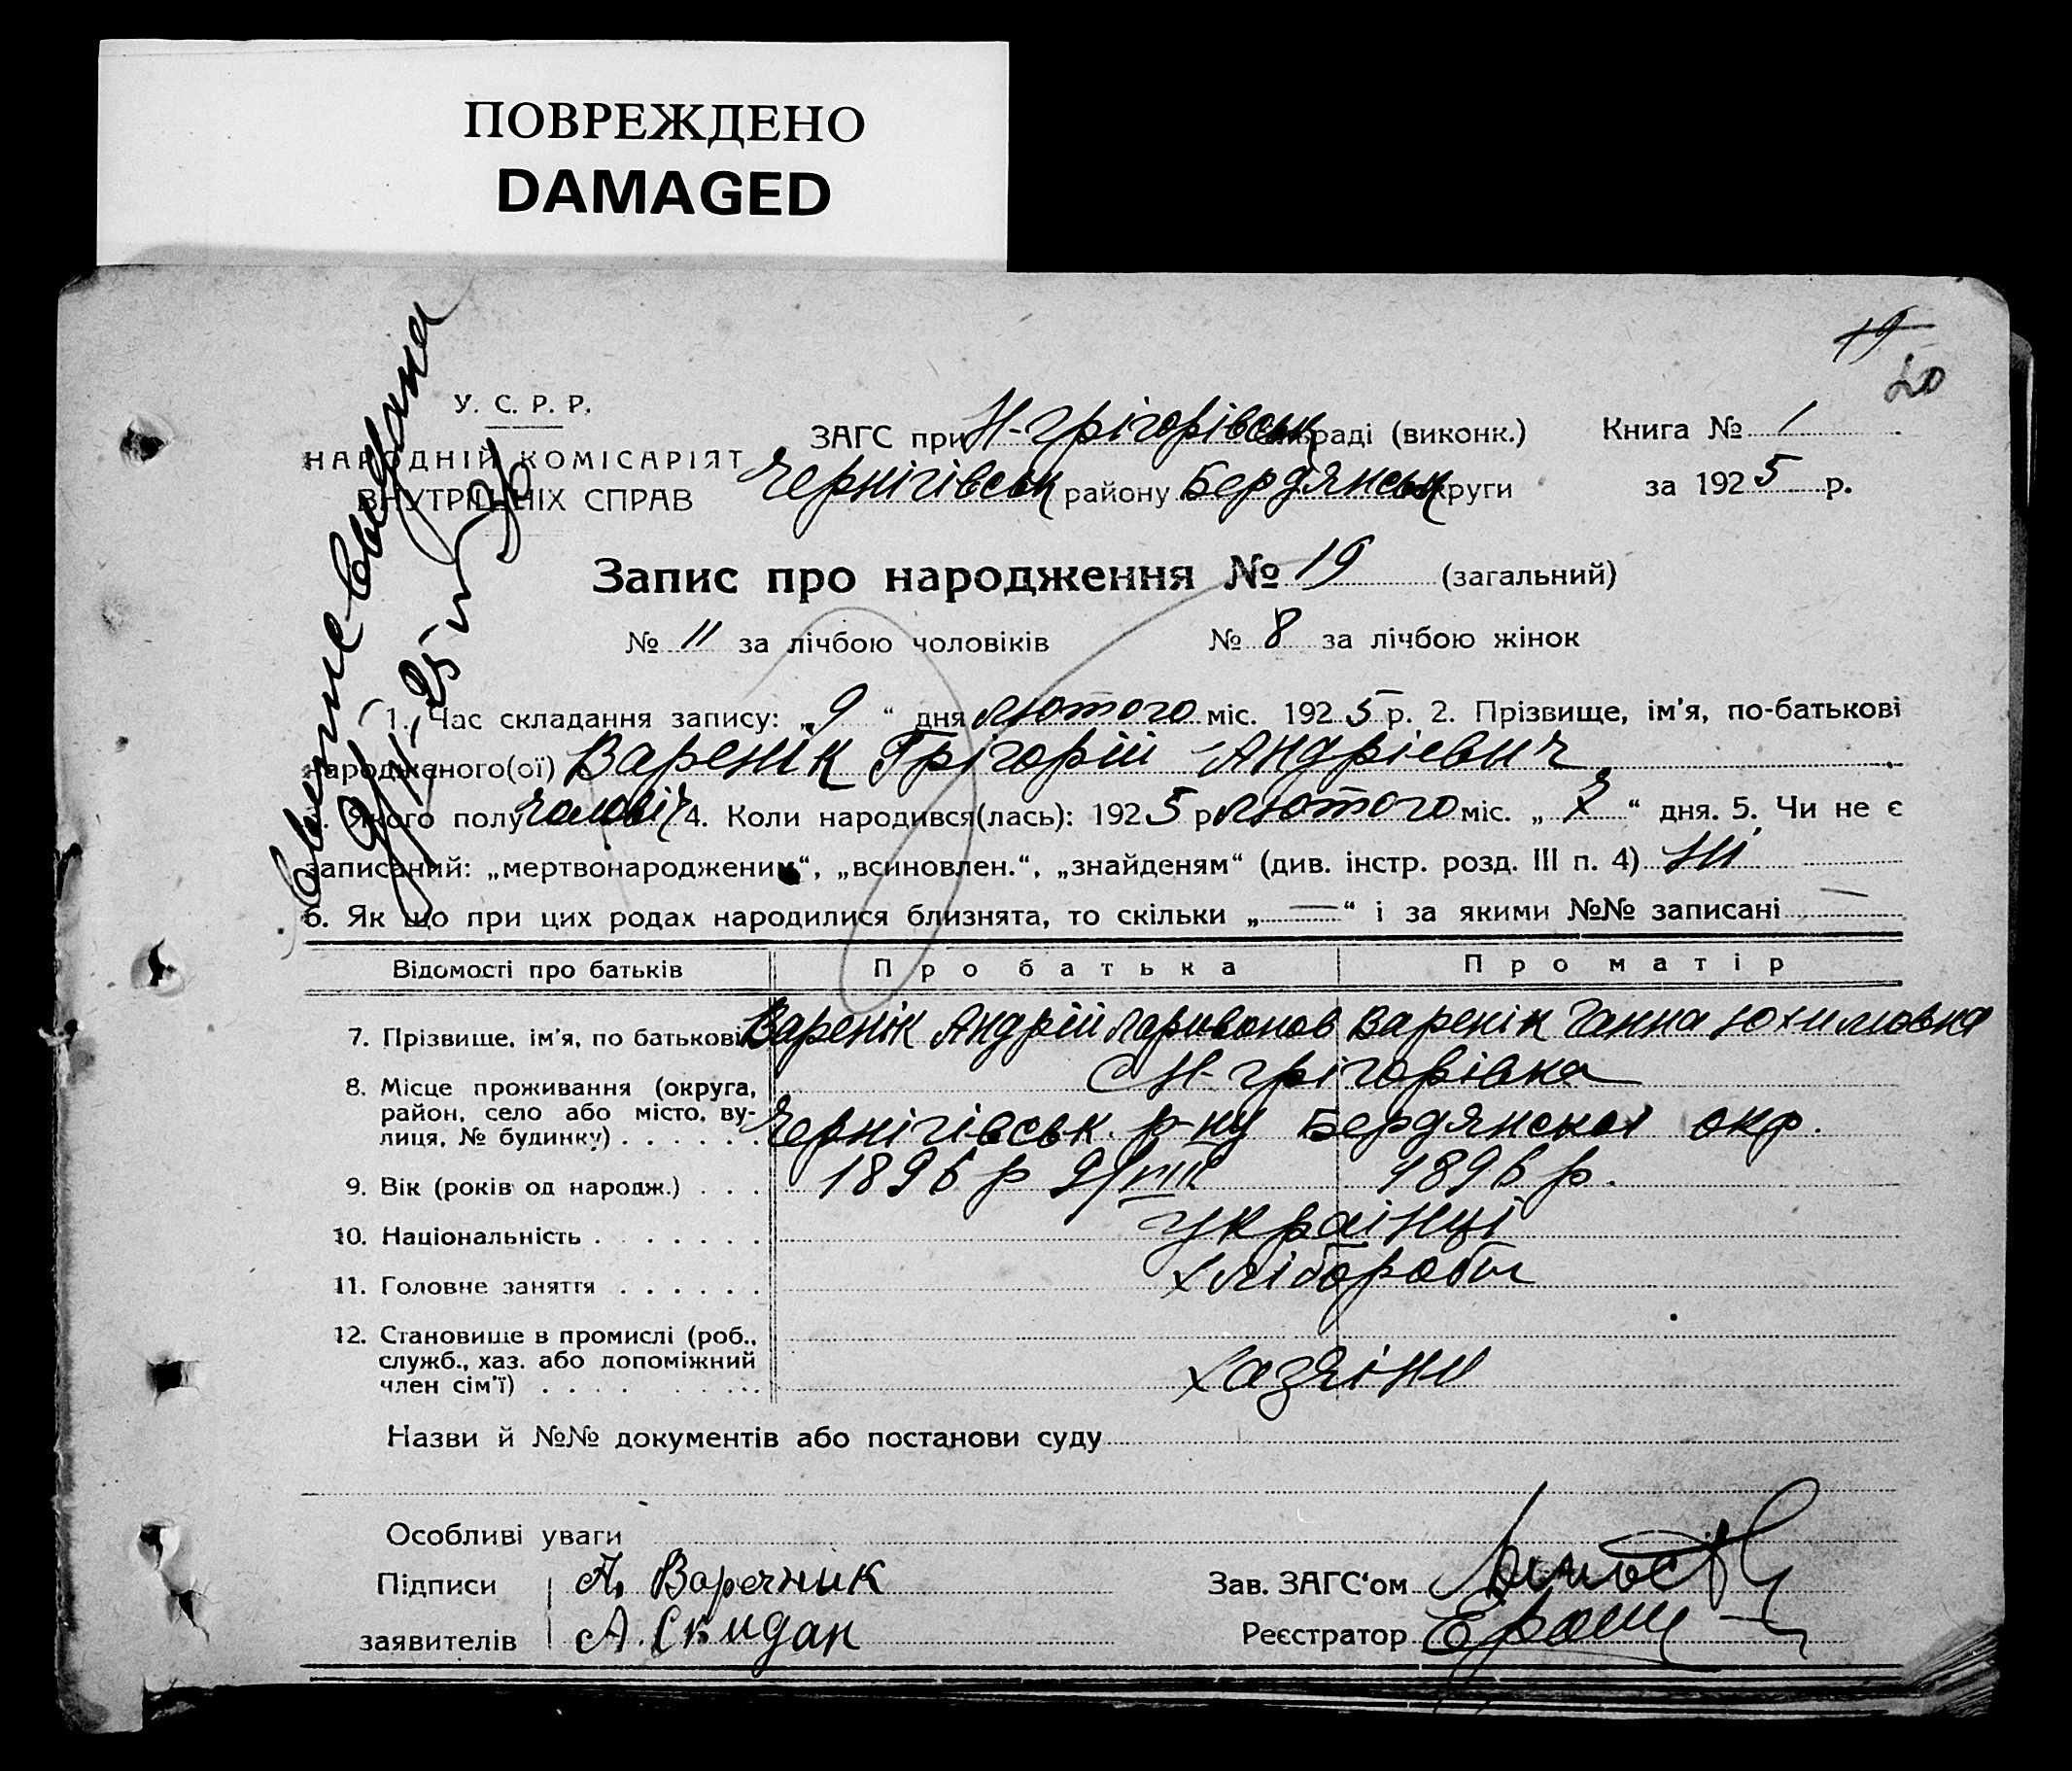 ПОВРЕЖДЕНО
DAMAGED
19
20
У. С. Р. Р.
НАРОДНІЙ КОМІСАРІЯТ
ВНУТРІШНІХ СПРАВ
ЗАГС при Н-Грігорівськ раді (виконк.) Книга № 1
Чернігівськ району Бердянськ округи за 1925 р.
Запис про народження № 19 (загальний)
№ 11 за лічбою чоловіків № 8 за лічбою жінок
1. Час складання запису: „9“ дня лютого міс. 1925 р. 2. Прізвище, ім'я, по-батькові
народженого(ої)Варенік Грігорій Андріевич
3. Якого полу чоловіч 4. Коли народився(лась): 1925 р лютого міс. „ “ дня. 5. Чи не є
записаний: „мертвонародженим“, „всиновлен.“, „знайденям“ (див. інстр. розд. III п. 4) Ні
6. Як що при цих родах народилися близнята, то скільки „—“ і за якими №№ записані —
Відомості про батьків Про батька Про матір
7. Прізвище, ім'я, по батькові Варенік Андрій Ларивонов Варенік Ганна Юхимовна
8. Місце проживання (округа, С Н-Грігорівка
район, село або місто, ву-
лиця, № будинку) . . . . . . Чернігівськ. р-ну Бердянскоі окр.
9. Вік (років од народж.) . . . 1896 р 9/VIII 1896 р.
10. Національність . . . . . . . українці
11. Головне заняття . . . . . . хлібороби
12. Становище в промислі (роб.,
служб., хаз. або допоміжний
член сім'ї) . . . . . . . . хазяіни
Назви й №№ документів або постанови суду
Особливі уваги
Підписи А. Варечник Зав. ЗАГС'ом
заявителів А. Скидан Реєстратор